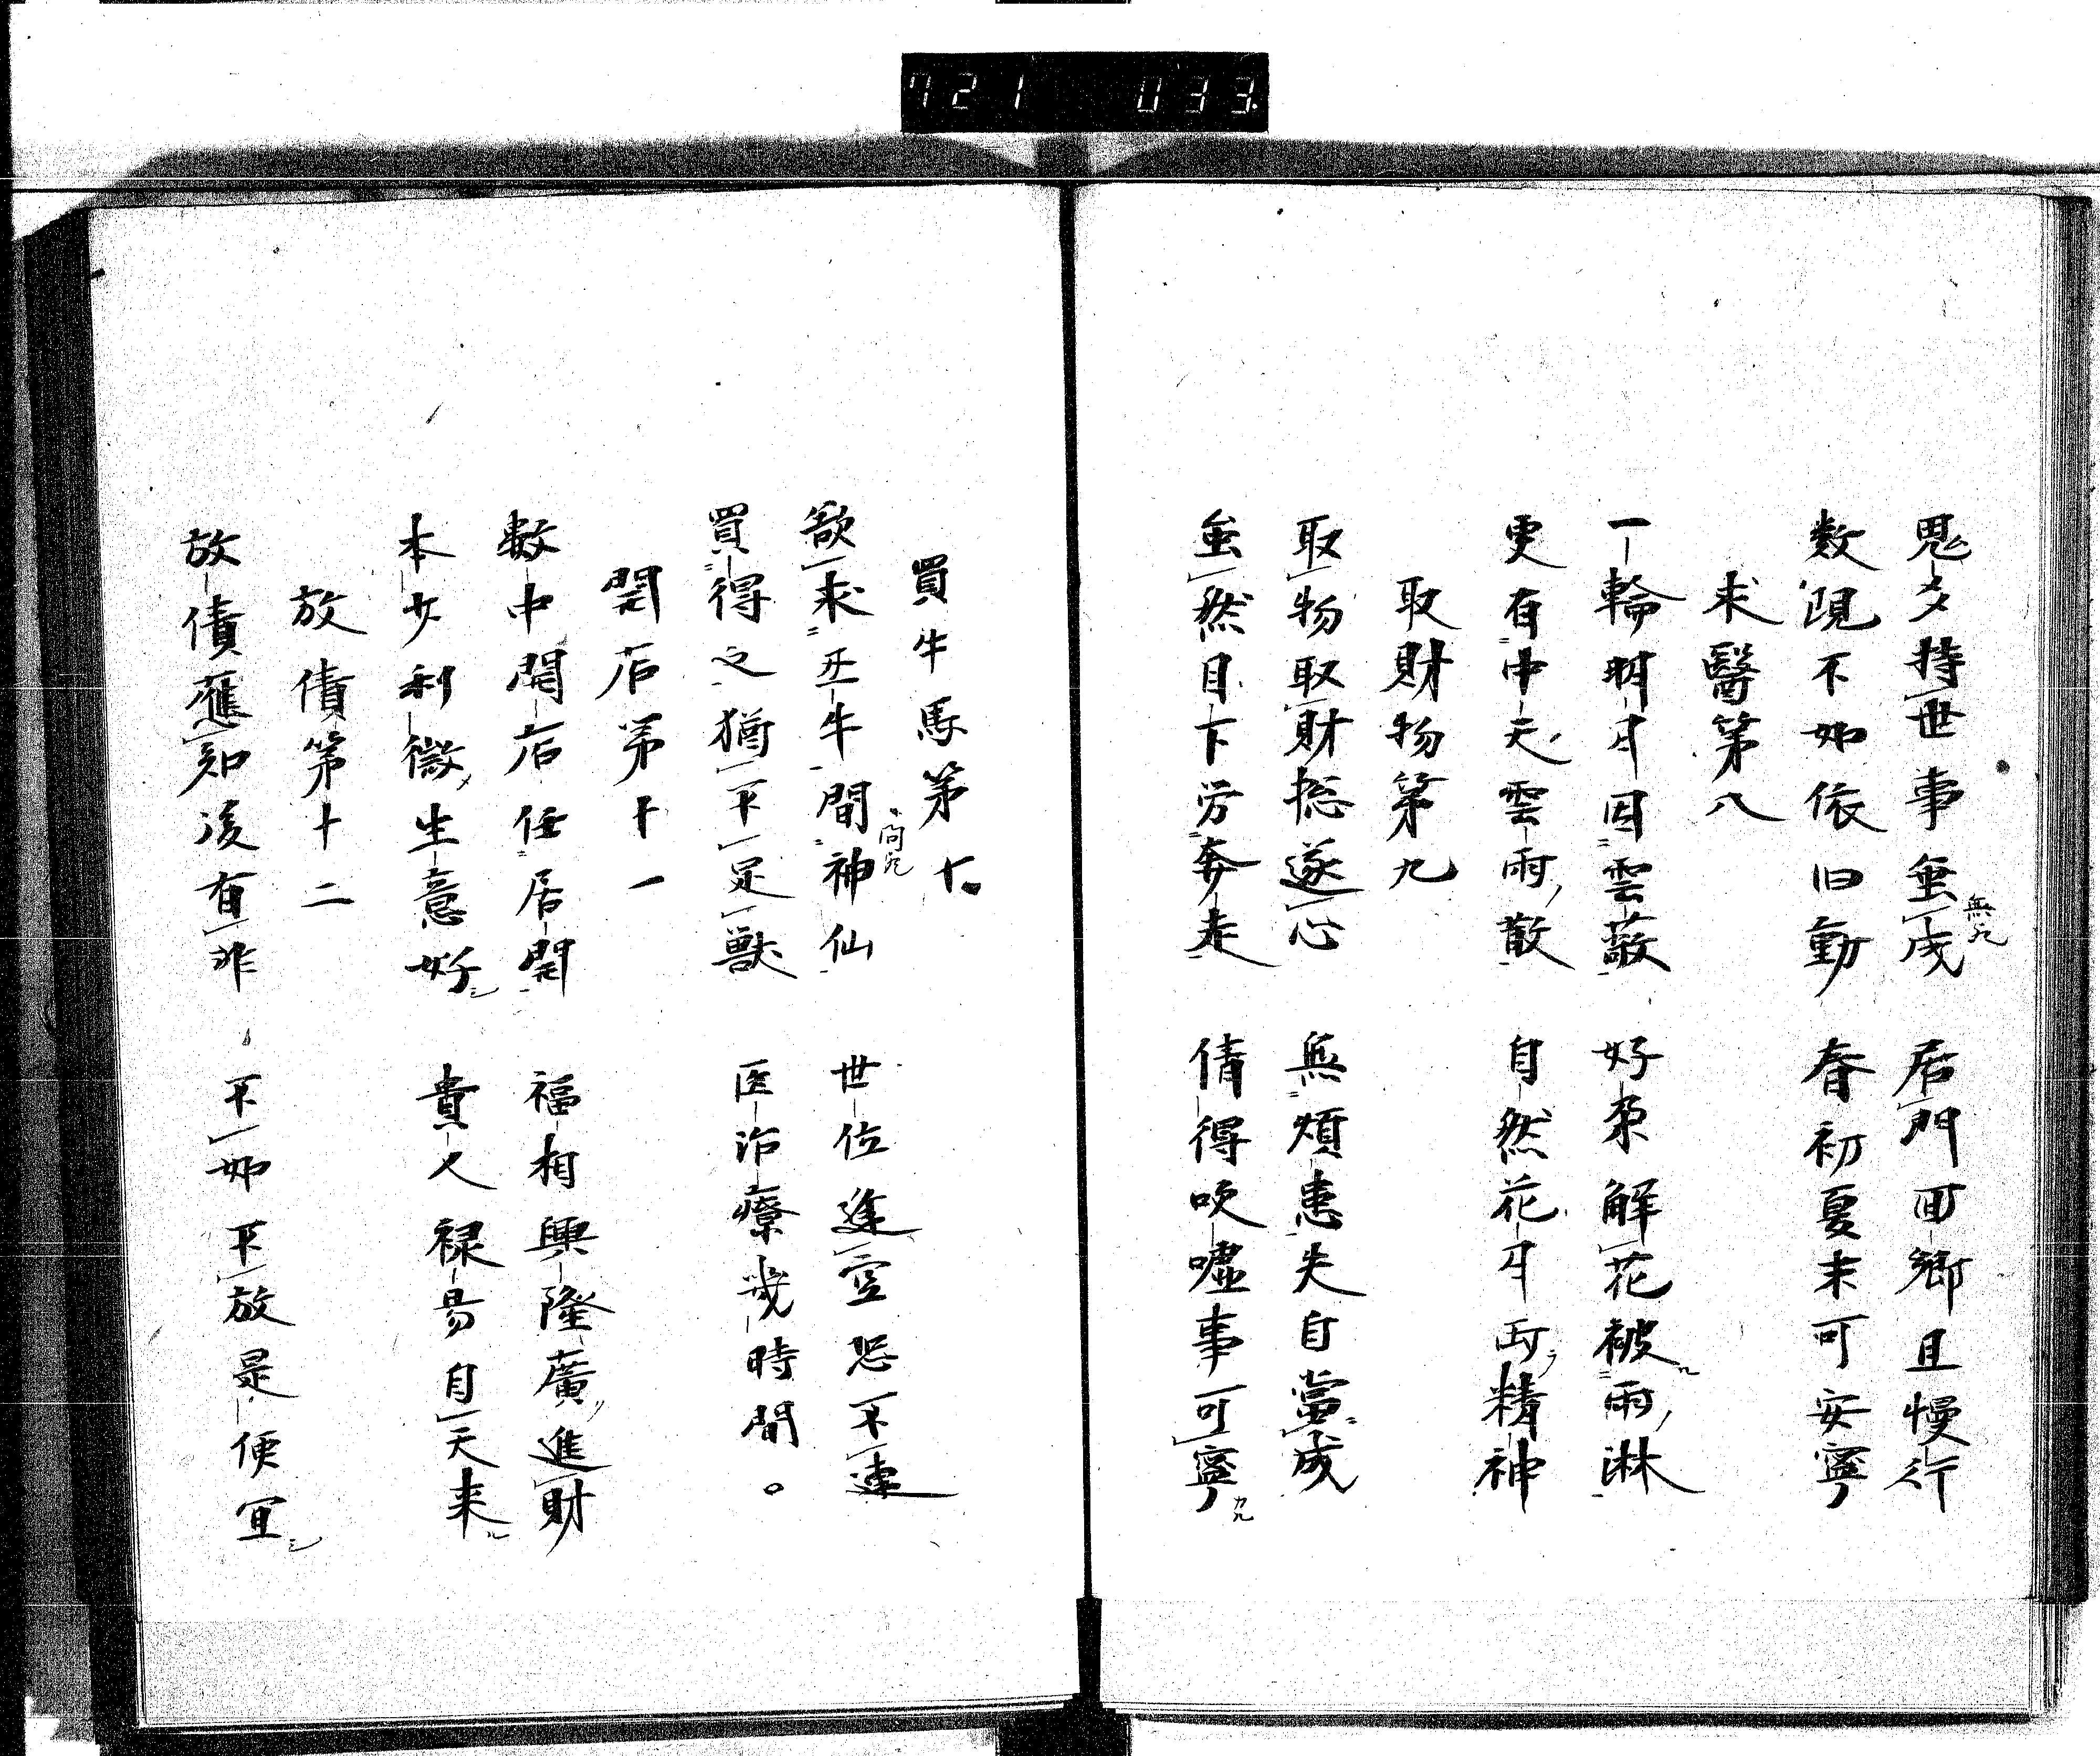 721 033
鬼多持世事虽成 居門回鄉且慢行
無九
数現不如依旧動 春初夏末可安寧
求醫第八
一輪明月因雲蔽 好朶解花被雨淋
更有中天雲雨散 自然花月両精神
取財物第九
取物取財揔遂心 無煩患失自當成
虽然目下労奔走 倩得吹噓事可寧
買牛馬第十
欲求丕牛間神仙 世位逢空恐不速
問九
買得之猶不足獣 医治療幾時間。
開店第十一
数中開店任居開 福相興隆廣進財
本少利微生意好 貴人禄易自天来
放債第十二
放債應知後有非 不如不放是便宜